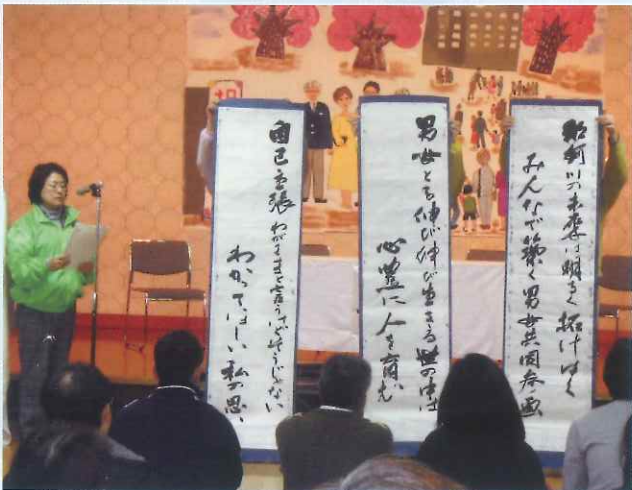 那珂川の未来は明るく拓けゆく
みんなで築く男女共同参画
男女とも伸び伸び生きる世の中は
心豊に人を育む
自己主張わがままと言うけどそうじゃない
わかってほしい私の思い